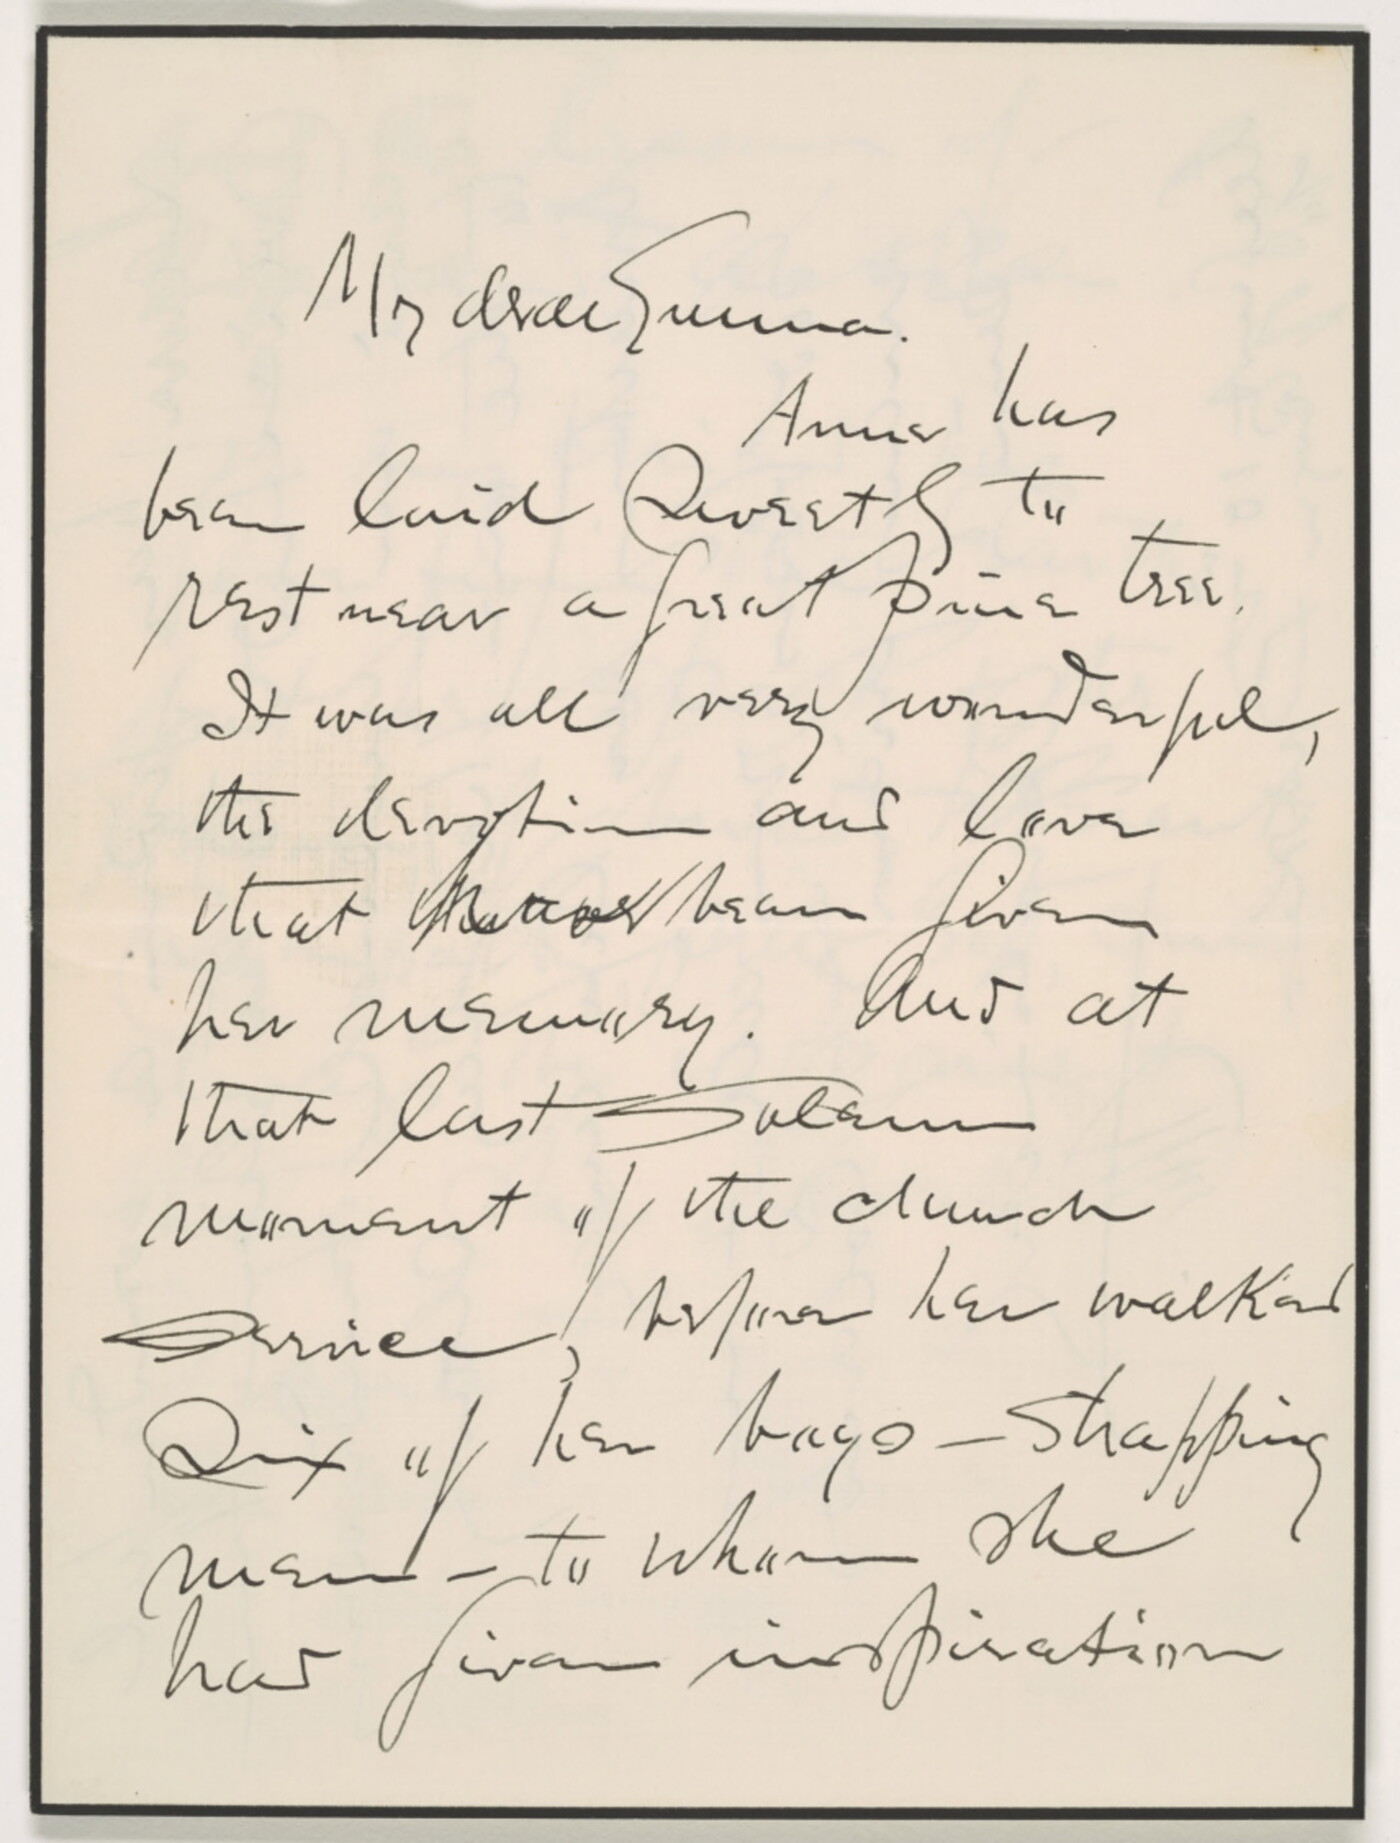 My dear Emma.
Anna has
been laid Sweetly to
rest near a great pine tree.
It was all very wonderful,
the devotion and love
that been given
her memory. And at
that last Solemn
moment of the church
Service, before her walked
Six of her boys – strapping
men – to whom she
had given inspiration